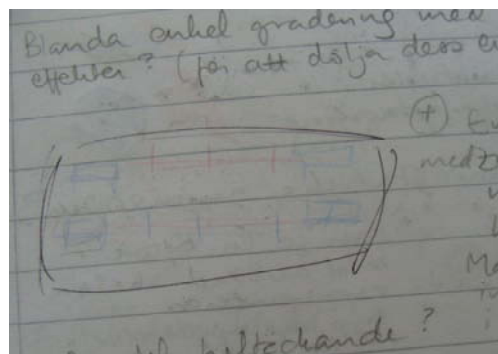 Blanda enkel gradering med
effekter? (för att dölja dess
+
med
M
heltäckande?